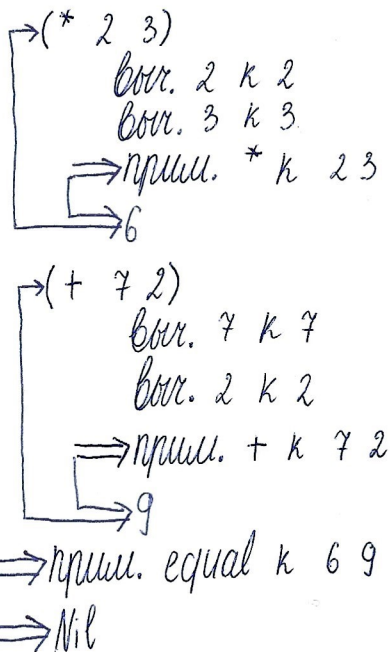 (* 2 3)
выч. 2 к 2
выч. 3 к 3
прим. * к 2 3
6
(+ 7 2)
выч. 7 к 7
выч. 2 к 2
прим. + к 7 2
9
прим. equal к 6 9
Nil